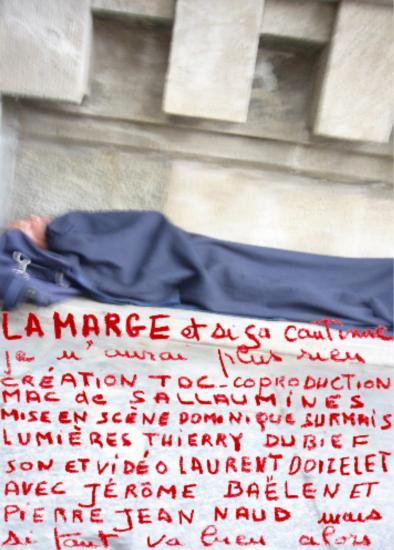 LA MARGE et si ça continue
je n'aurai plus rien
CRÉATION TOC-COPRODUCTION
MAC de SALLAUMINES
MISE EN SCÈNE DOMINIQUE SURMAIS
LUMIÈRES THIERRY DUBIEF
SON ET VIDÉO LAURENT DOIZELET
AVEC JÉRÔME BAËLEN ET
PIERRE JEAN NAUD mais
si tout va bien alors